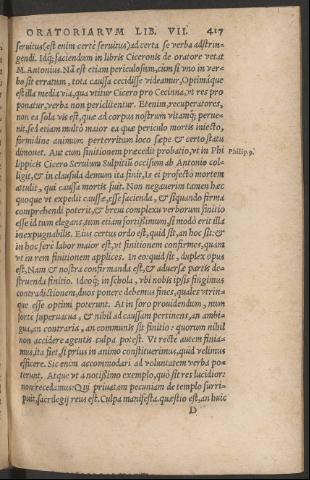 ORATORIARVM LIB. VII. 417
seruitus (est enim certè seruitus) ad certa se verba adstrin-
gendi. Idq; faciendum in libris Ciceronis de oratore vetat
M. Antonius. Nã est etiam periculosum, cùm si vno in ver-
bo sit erratum, tota caussa cecidisse videamur. Optimáque
est illa media via, qua vtitur Cicero pro Cecinna, vt res pro
ponatur, verba non periclitentur. Etenim, recuperatores,
non ea sola vis est, quæ ad corpus nostrum vitamq; perue-
nit, sed etiam multò maior ea quæ periculo mortis iniecto,
formidine animum perterritum loco sæpe & certo statu
dimouet. Aut cum finitionem præcedit probatio, vt in Phi
lippicis Cicero Seruium Sulpitiũ occisum ab Antonio col-
ligit, & in clausula demum ita finit, Is ei profectò mortem
attulit, qui caussa mortis fuit. Non negauerim tamen hæc
quoque vt expedit caussæ, esse facienda, & si quando firma
comprehendi poterit, & breui complexu verborum finitio
esse id tum elegans, tum etiam fortissimum, si modò erit illa
inexpugnabilis. Eius certus ordo est, quid sit, an hoc sit: &
in hoc ferè labor maior est, vt finitionem confirmes, quàm
vt in rem finitionem applices. In eo: quid sit, duplex opus
est, Nam & nostra confirmanda est, & aduersæ partis de-
struenda finitio. Ideoq; in schola, vbi nobis ipsis fingimus
contradictionem, duos ponere debemus fines, quales vtrin-
que esse optimi poterunt. At in foro prouidendum, num
fortè superuacua, & nihil ad caussam pertinens, an ambi-
gua, an contraria, an communis sit finitio: quorum nihil
non accidere agentis culpa potest. Vt rectè autem finia-
mus, ita fiet, si prius in animo constituerimus, quid velimus
efficere. Sic enim accommodari ad voluntatem verba po-
terunt. Atque vt a notissimo exemplo, quò sit res lucidior:
non recedamus: Qui priuatam pecuniam de templo surri-
puit, sacrilegij reus est. Culpa manifesta. quæstio est, an huic
D
Philip. 9.